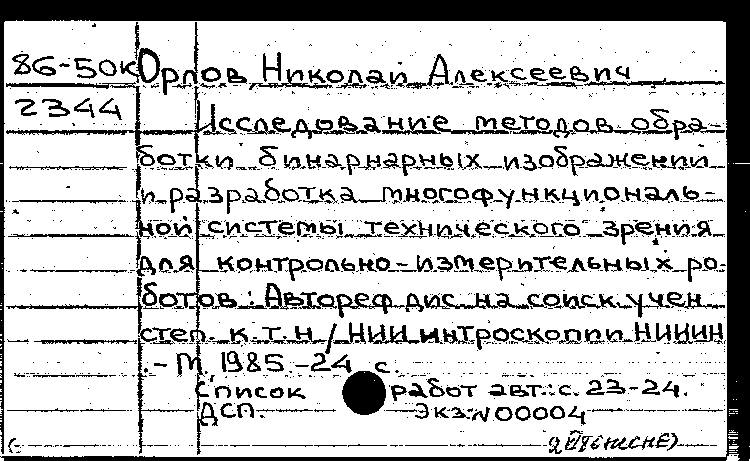 86-50к Орлов Николай Алексеевич
2344 Исследование методов обра-
ботки бинарнарных изображении
и разработка многофункциональ-
ной системы технического зрения
для контрольно-измерительных ро-
ботов: Автореф дис. на соиск учен
степ. к.т.н / НИИ интроскопии НИИИН
.-М, 1985.-24 с.
Список работ авт.: с. 23-24.
ДСП. Экз. N 00004